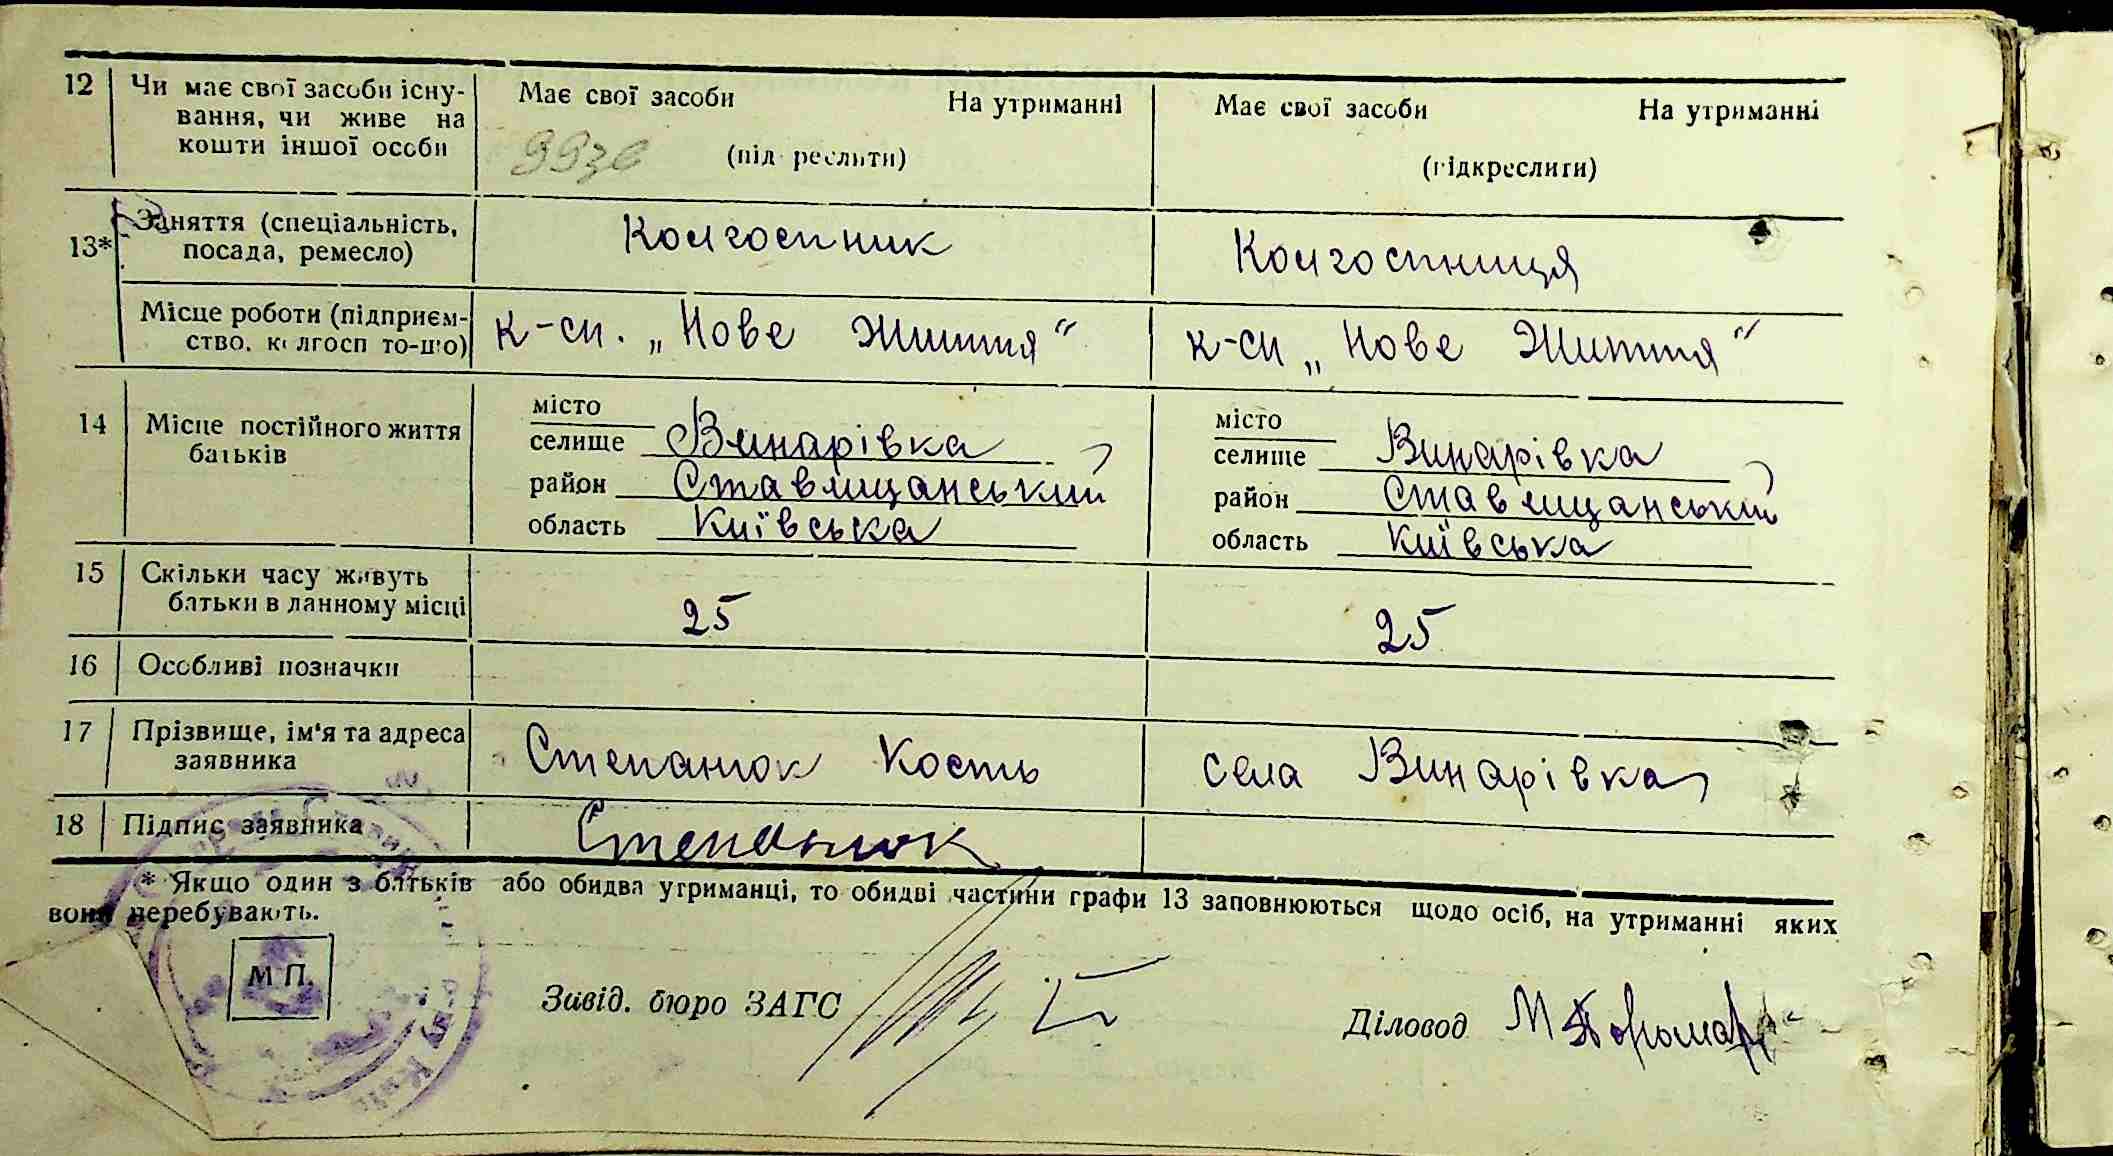 12 Чи має свої засоби існу- Має свої засоби На утриманні Має свої засоби На утриманні
вання, чи живе на
кошти іншої особи (підкреслити) (підкреслити)
13* Заняття (спеціальність, Колгоспник Колгоспниця
посада, ремесло)
Місце роботи (підприєм- к-сп. „Нове Життя“ к-сп „Нове Життя“
ство, колгосп то-що)
місто місто
14 Місце постійного життя селище Винарівка селище Винарівка
батьків район Ставищанський район Ставищанський
область Київська область Київська
15 Скільки часу живуть 25 25
батьки в данному місці
16 Особливі позначки
17 Прізвище, ім'я та адреса Степанюк Кость села Винарівка
заявника
18 Підпис заявника Степанюк
* Якщо один з батьків або обидва утриманці, то обидві частини графи 13 заповнюються щодо осіб, на утриманні яких
вони перебувають.
М П.
Завід. бюро ЗАГС Діловод